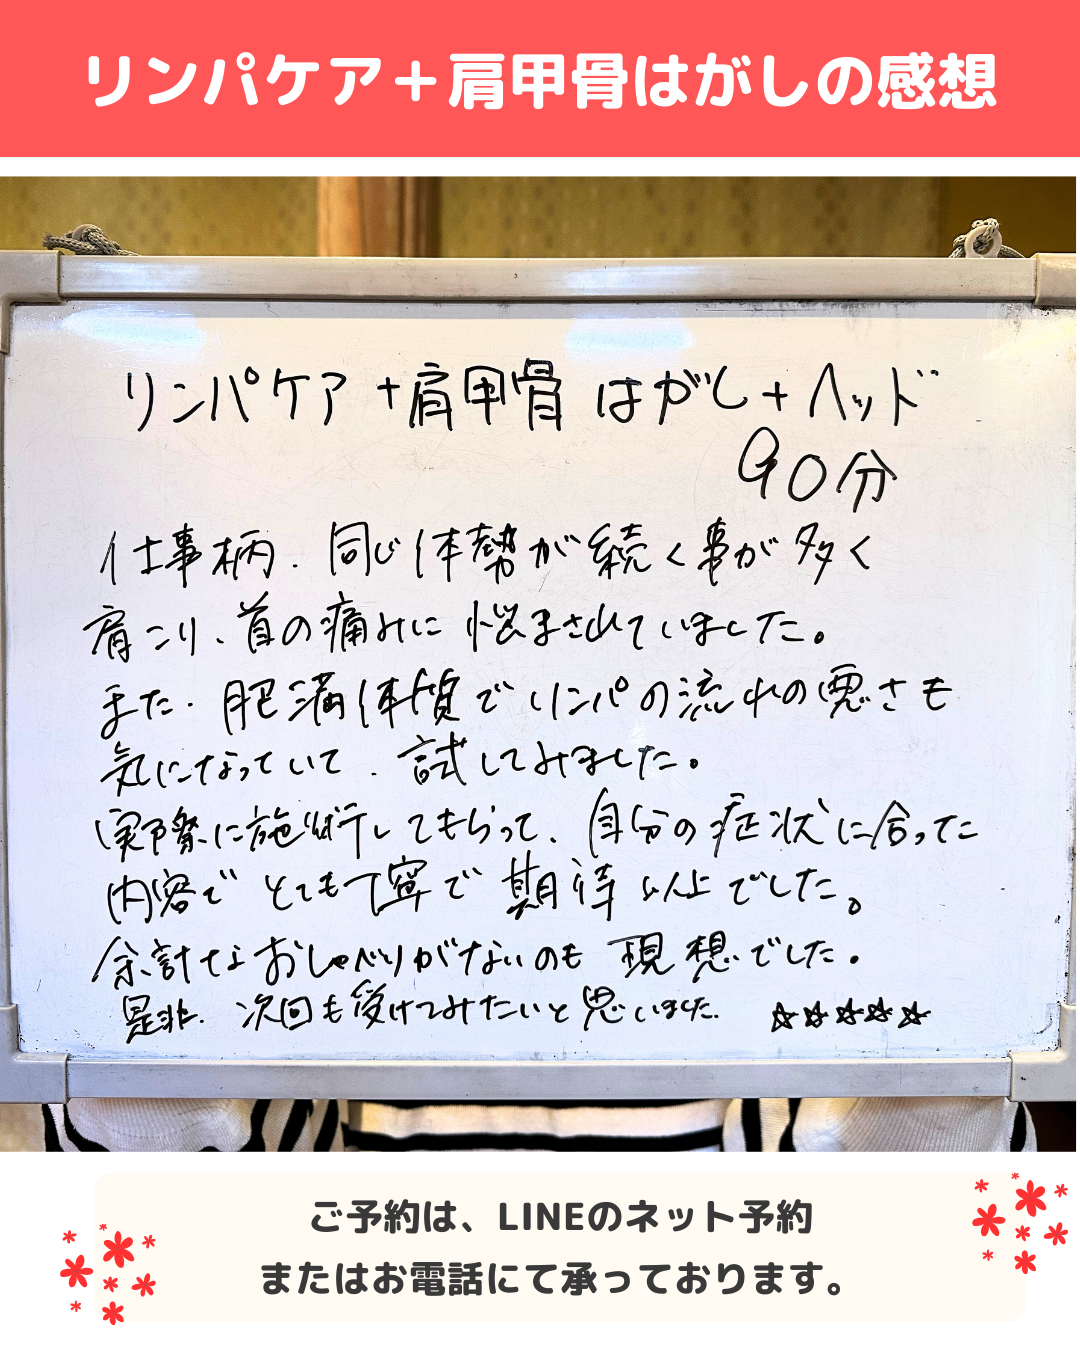 リンパケア＋肩甲骨はがしの感想
リンパケア＋肩甲骨はがし＋ヘッド
90分
仕事柄、同じ体勢が続く事が多く
肩こり、首の痛みに悩まされていました。
また、肥満体質でリンパの流れの悪さも
気になっていて、試してみました。
実際に施術してもらって、自分の症状に合った
内容でとても丁寧で期待以上でした。
余計なおしゃべりがないのも現想でした。
是非、次回も受けてみたいと思いました。 ☆☆☆☆☆
ご予約は、LINEのネット予約
またはお電話にて承っております。